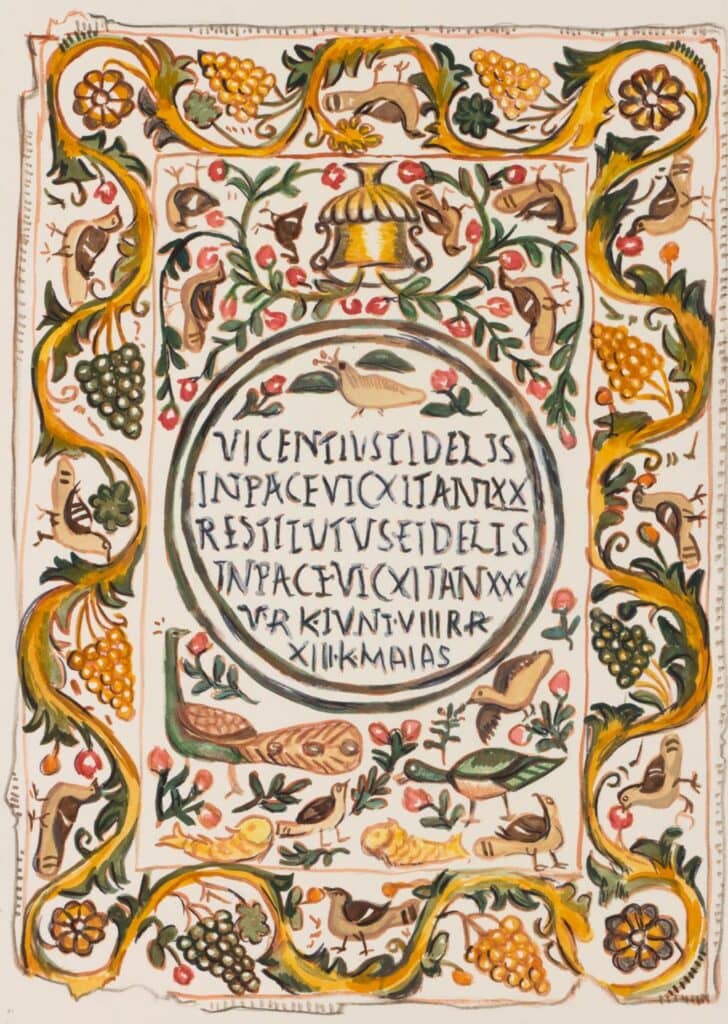 VICENTIUSTIDELIS
INPACEVICXITANIXX
RESTITUTUSEIDELIS
INPACEVICXITANXXX
V·R·K·IVNI·VIII R·R
XIII·KMAIAS